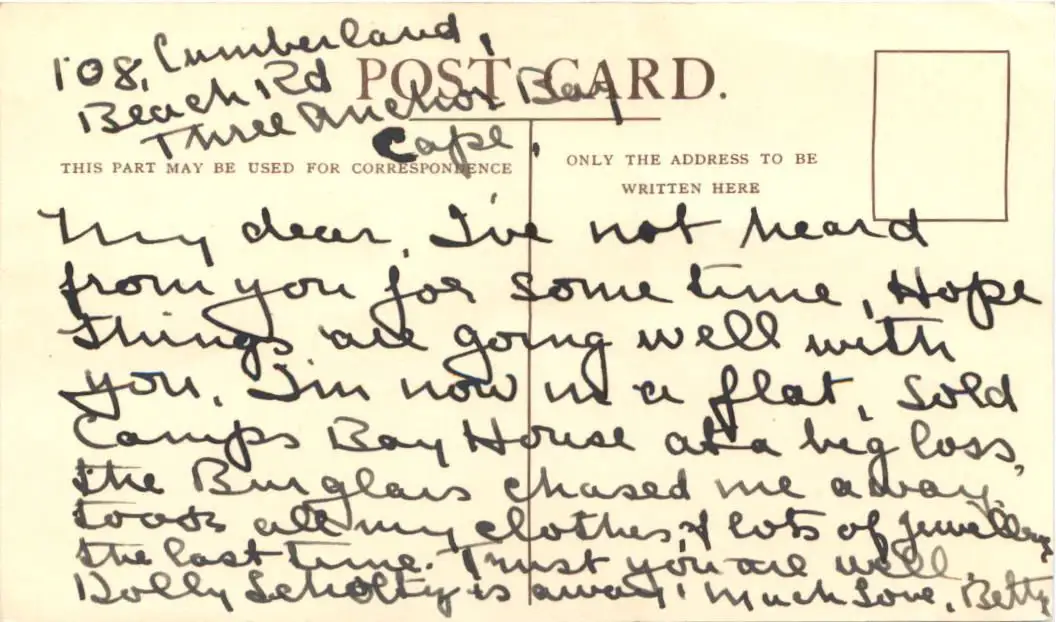 108, Cumberland,
Beach Rd
Three Anchor Bay
Cape.
POST CARD.
THIS PART MAY BE USED FOR CORRESPONDENCE
ONLY THE ADDRESS TO BE
WRITTEN HERE
My dear, I've not heard
from you for some time, Hope
things are going well with
you. I'm now in a flat, sold
Camps Bay House at a big loss,
the Burglars chased me away.
took all my clothes, & lots of jewellery
the last time. Trust you are well.
Dolly is away. Much Love, Betty